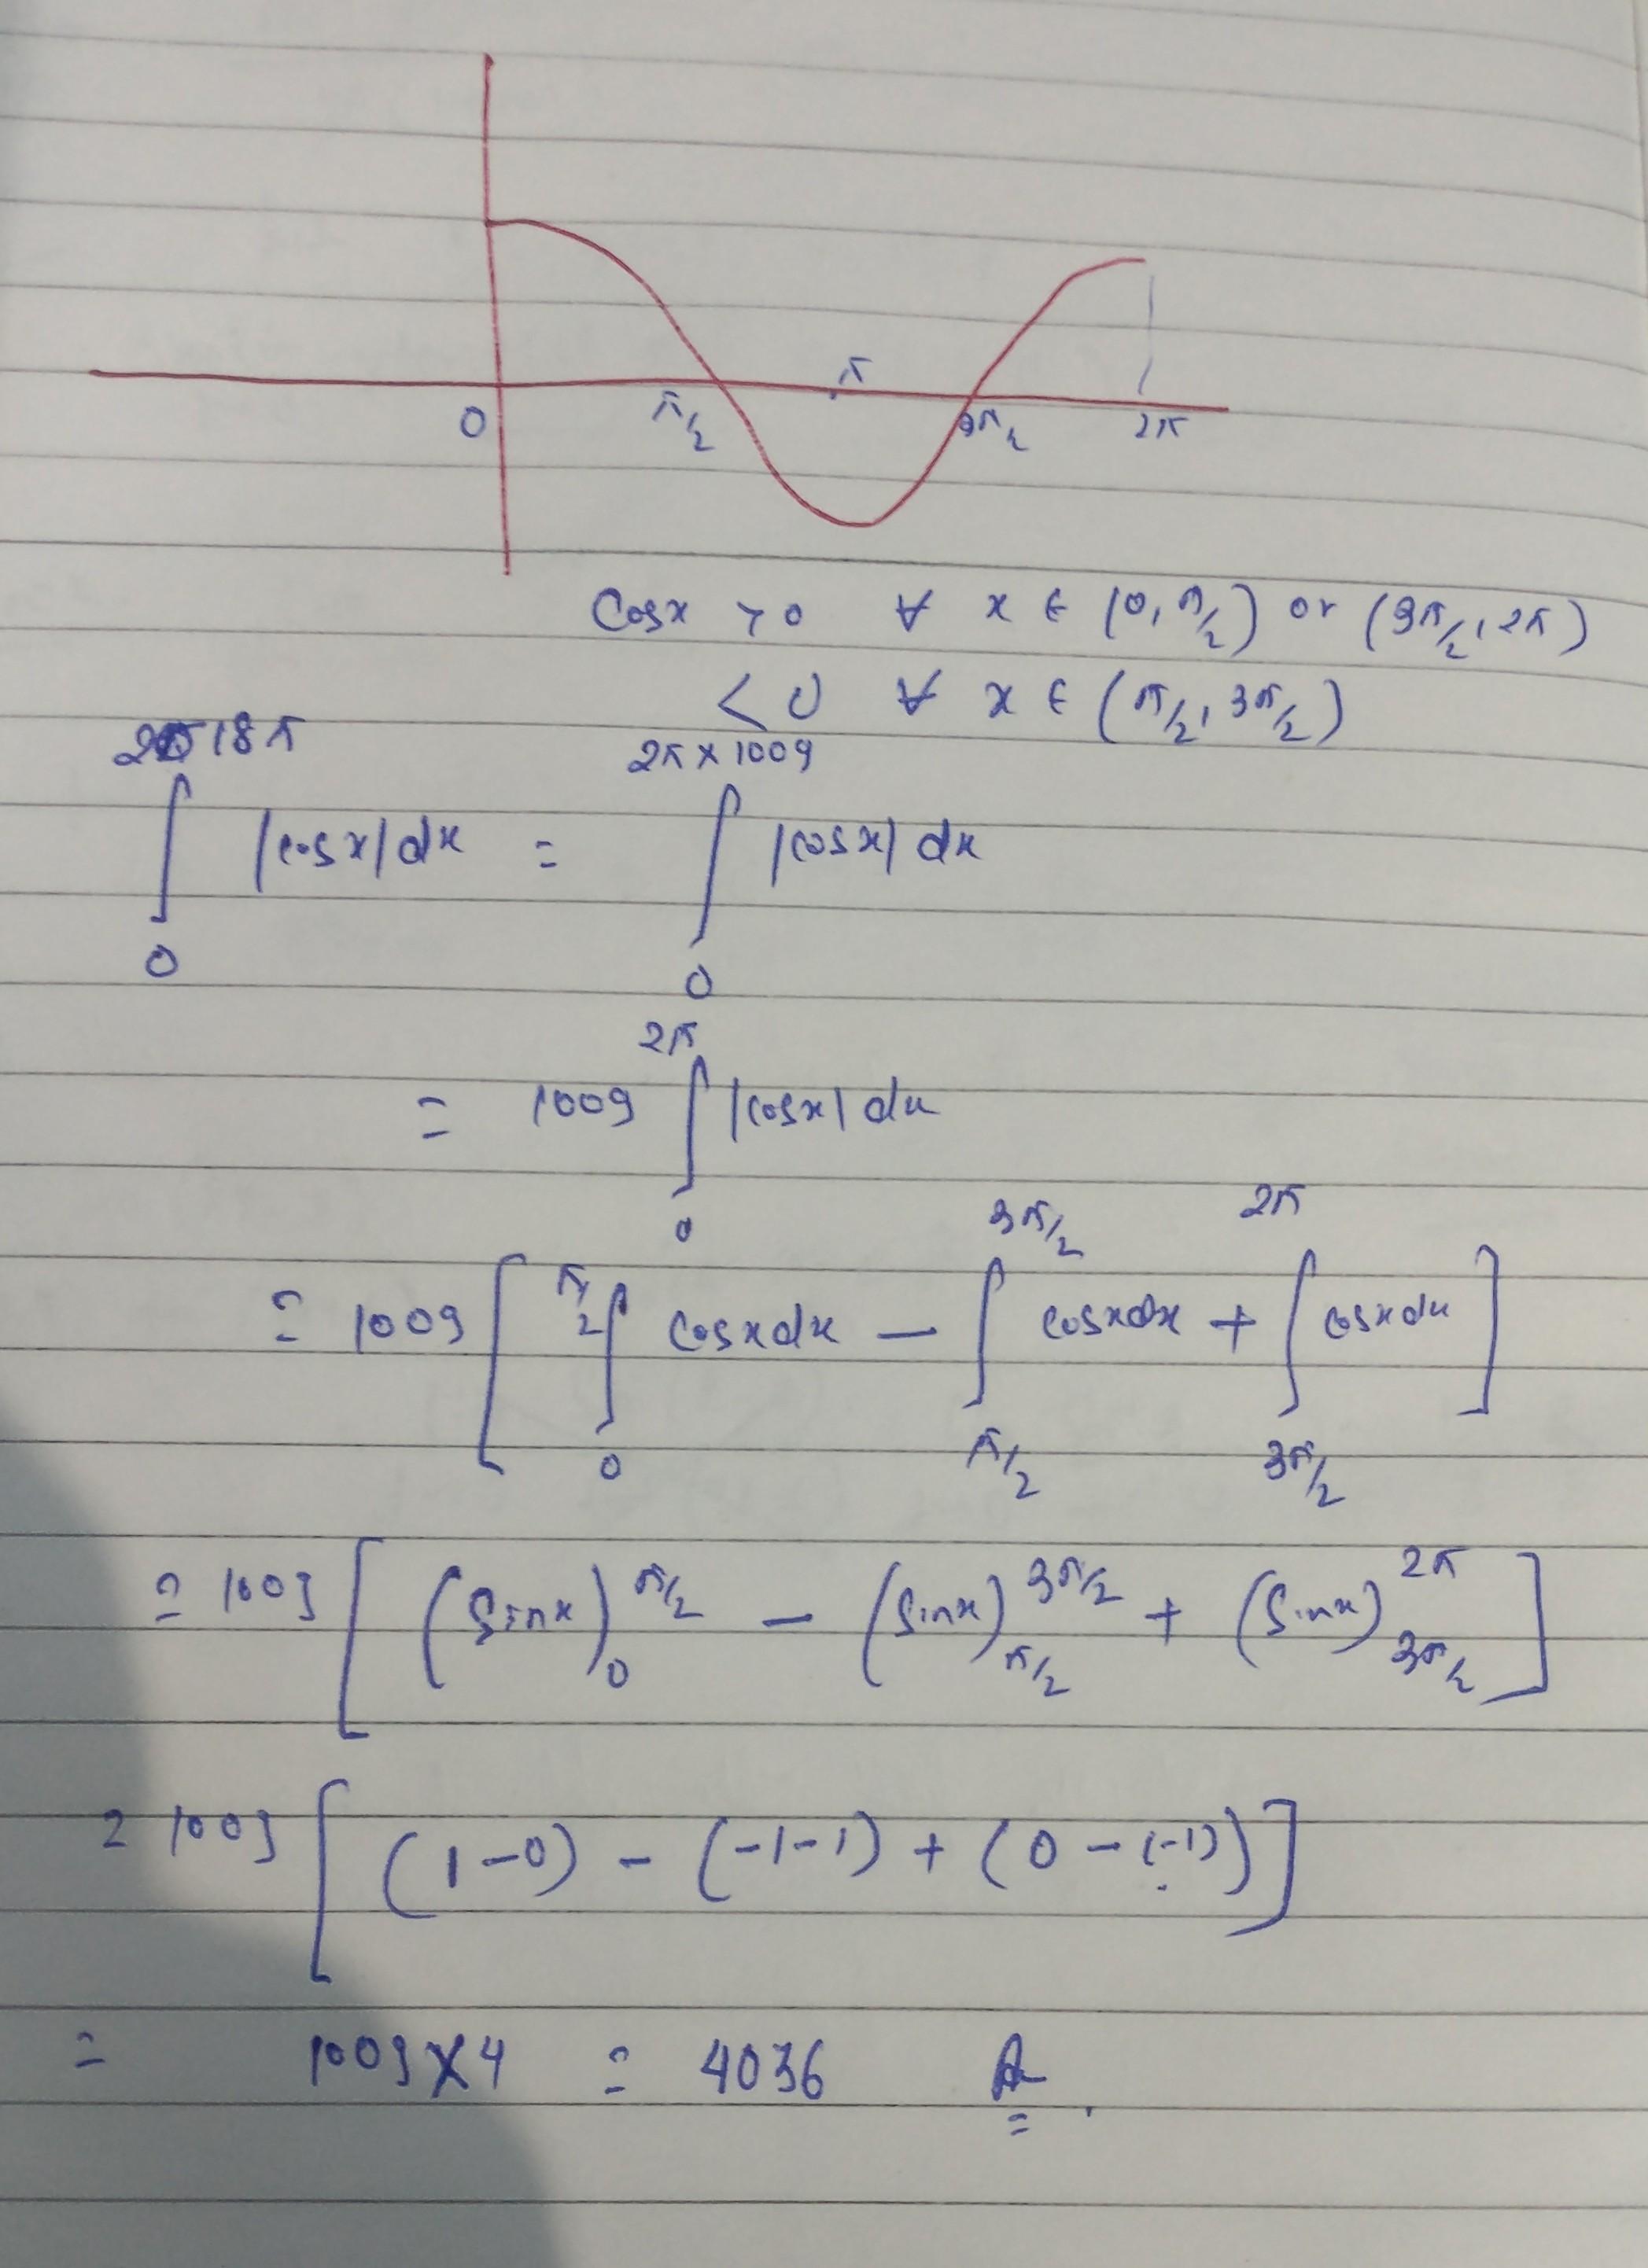 0 π/2 π 3π/2 2π
Cosx > 0 ∀ x ∈ (0, π/2) or (3π/2, 2π)
< 0 ∀ x ∈ (π/2, 3π/2)
∫₀^{2018π} |cosx| dx = ∫₀^{2π×1009} |cosx| dx
= 1009 ∫₀^{2π} |cosx| dx
= 1009 [ ∫₀^{π/2} cosx dx − ∫_{π/2}^{3π/2} cosx dx + ∫_{3π/2}^{2π} cosx dx ]
= 1009 [ (Sinx)₀^{π/2} − (Sinx)_{π/2}^{3π/2} + (Sinx)_{3π/2}^{2π} ]
= 1009 [ (1-0) - (-1-1) + (0-(-1)) ]
= 1009 × 4 = 4036